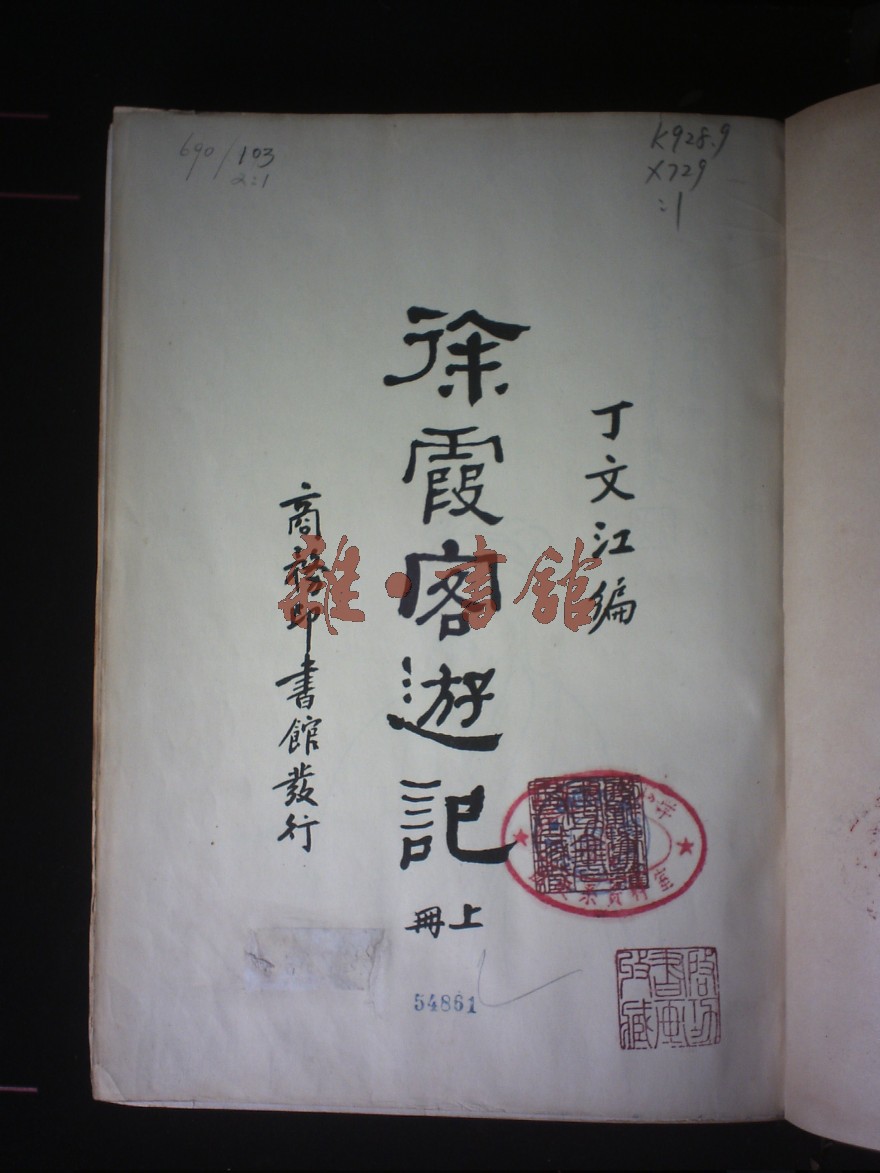 690/103
2:1
K928.9
X729
:1
丁文江編
徐霞客遊記
上冊
商務印書館發行
雜·書館
54861